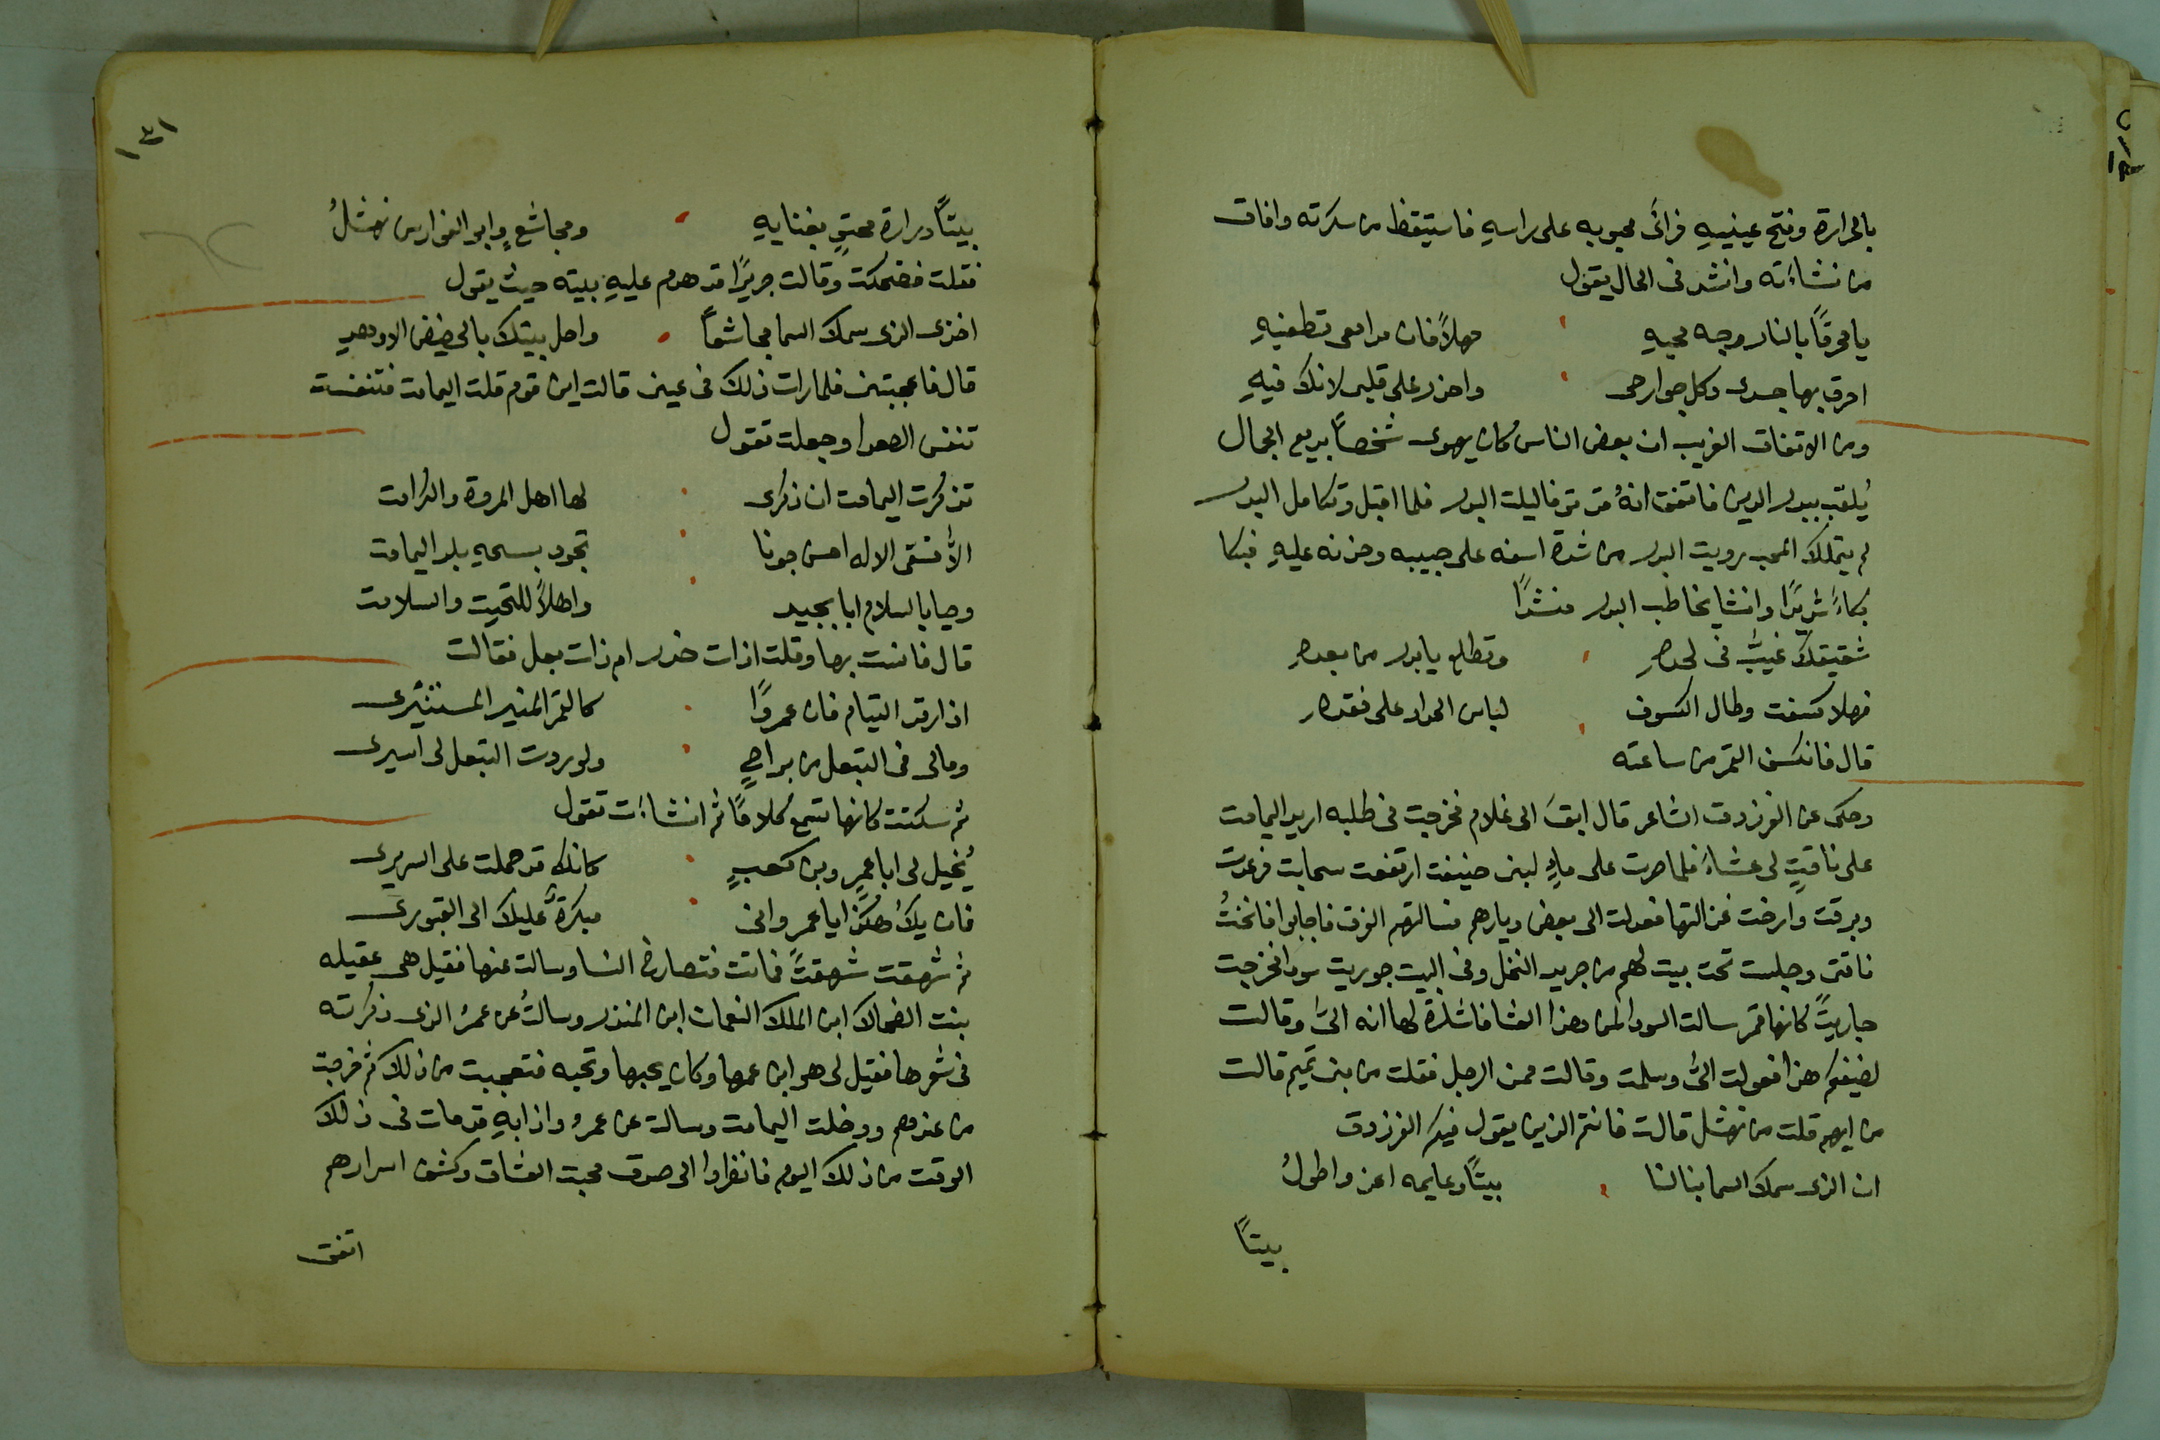 بالحرارة وفتح عينيهِ فرائَ محبوبه على راسهِ فاستيقظ من سكرته وافاق
من نشاءته وانشد فى الحال يقول
يا محرقًا بالنار وجه محبهِ مهلاً فان مدامعى تطفيهِ
احرق بها جسدى وكل جوارحى واحذر على قلبى لانك فيهِ
ومن الاتفاق الغريب ان بعض الناس كان يهوى شخصاً بديع الجمال
يُلقب ببدر الدين فاتفق انهُ قد توفا ليلت البدر فلما اقبل وتكامل البدر
لم يتملك المحب رويت البدر من شدة اسفه على حبيبه وحزنه عليهِ فبكا
بكاءً شديدًا وانشا يخاطب البدر منشدًا
شقيقك غيبَّ فى لحدهِ وتطلع يا بدر من بعدهِ
فهلا كسفت وطال الكسوف لباس الحداد على فقدهِ
قال فانكسف القمر من ساعته
وحكى عن الفرزدق الشاعر قال ابقَ الى غلام فخرجت فى طلبه اريد اليمامت
على ناقتٍ لى عشاءً فلما صرت على ماءٍ لبنى حنيفت ارتفعت سحابت فرعدت
وبرقت وارخت عزالتها فعدلت الى بعض ديارهم فسالتهم الزفت فاجابوا فانختُ
ناقتى وجلست تحت بيت لهم من جريد النخل وفى البيت جويريت سودا فخرجت
جاريتً كانها قمر سالت السودا لمن هذا العشا فاشارة لها انه الىَّ وقالت
لضيفكم هذا فعدلت الىَّ وسلمت وقالت ممن الرجل فقلت من بنى تميم قالت
من ايهم قلت من نهشل قالت فانتم الذين يقول فيكم الفرزدق
ان الذى سمك السما بنا لنا بيتًا دعايمه اعز واطولُ
بيتًا
١٤١
بيتًا درارة محتبٍ بفنايهِ ومجاشعٍ وابو الفوارس نهشلُ
فقلت فضحكت وقالت جريرًا قد هدم عليهِ بيته حيث يقول
اخزى الذى سمك السما مجاشعاً واحل بيتك بالحضيض الاوهدِ
قال فاعجبتنى فلما رات ذلك فى عينى قالت اين قوم قلت اليمامت فتنفست
تنفس الصعدا وجعلت تقول
تذكرت اليمامت ان ذكرى لها اهل المروة والكرامت
الاَّ فسقى الاله احسن جونا تجود بسحهِ بلد اليمامت
وحيا بالسلام ابا بجيد واهلاً للتحيت والسلامت
قال فانست بها وقلت اذات خدر ام ذات بعل فقالت
اذا رقد النيام فان عمروًا كالقمر المنير المستنيرى
ومالى فى التبعل من براحٍ ولو ردت التبعل لى اسيرى
ثم سكتت كانها تسمع كلامًا ثم انشاءت تقول
يُخيل لى ابا عمرٍ وبن كعبٍ كانك قد حملت على السريرى
فان يكُ هكذا يا عمر وانى مبكرةً عليك الى القبورى
ثم شهقت شهقتً فماتت فتصارخ النسا وسالت عنها فقيل هى عقيله
بنت الضحاك ابن الملك النعمان ابن المنذر وسالتُ عن عمرُ الذى ذكرته
فى شعرها فقيل لى هو ابن عمها وكان يحبها وتحبه فتعجبت من ذلك ثم خرجت
من عندهم ودخلت اليمامت وسالت عن عمرُ واذا بهِ قد مات فى ذلك
الوقت من ذلك اليوم فانظروا الى صدق محبت العشاق وكشف اسرارهم
اتفق